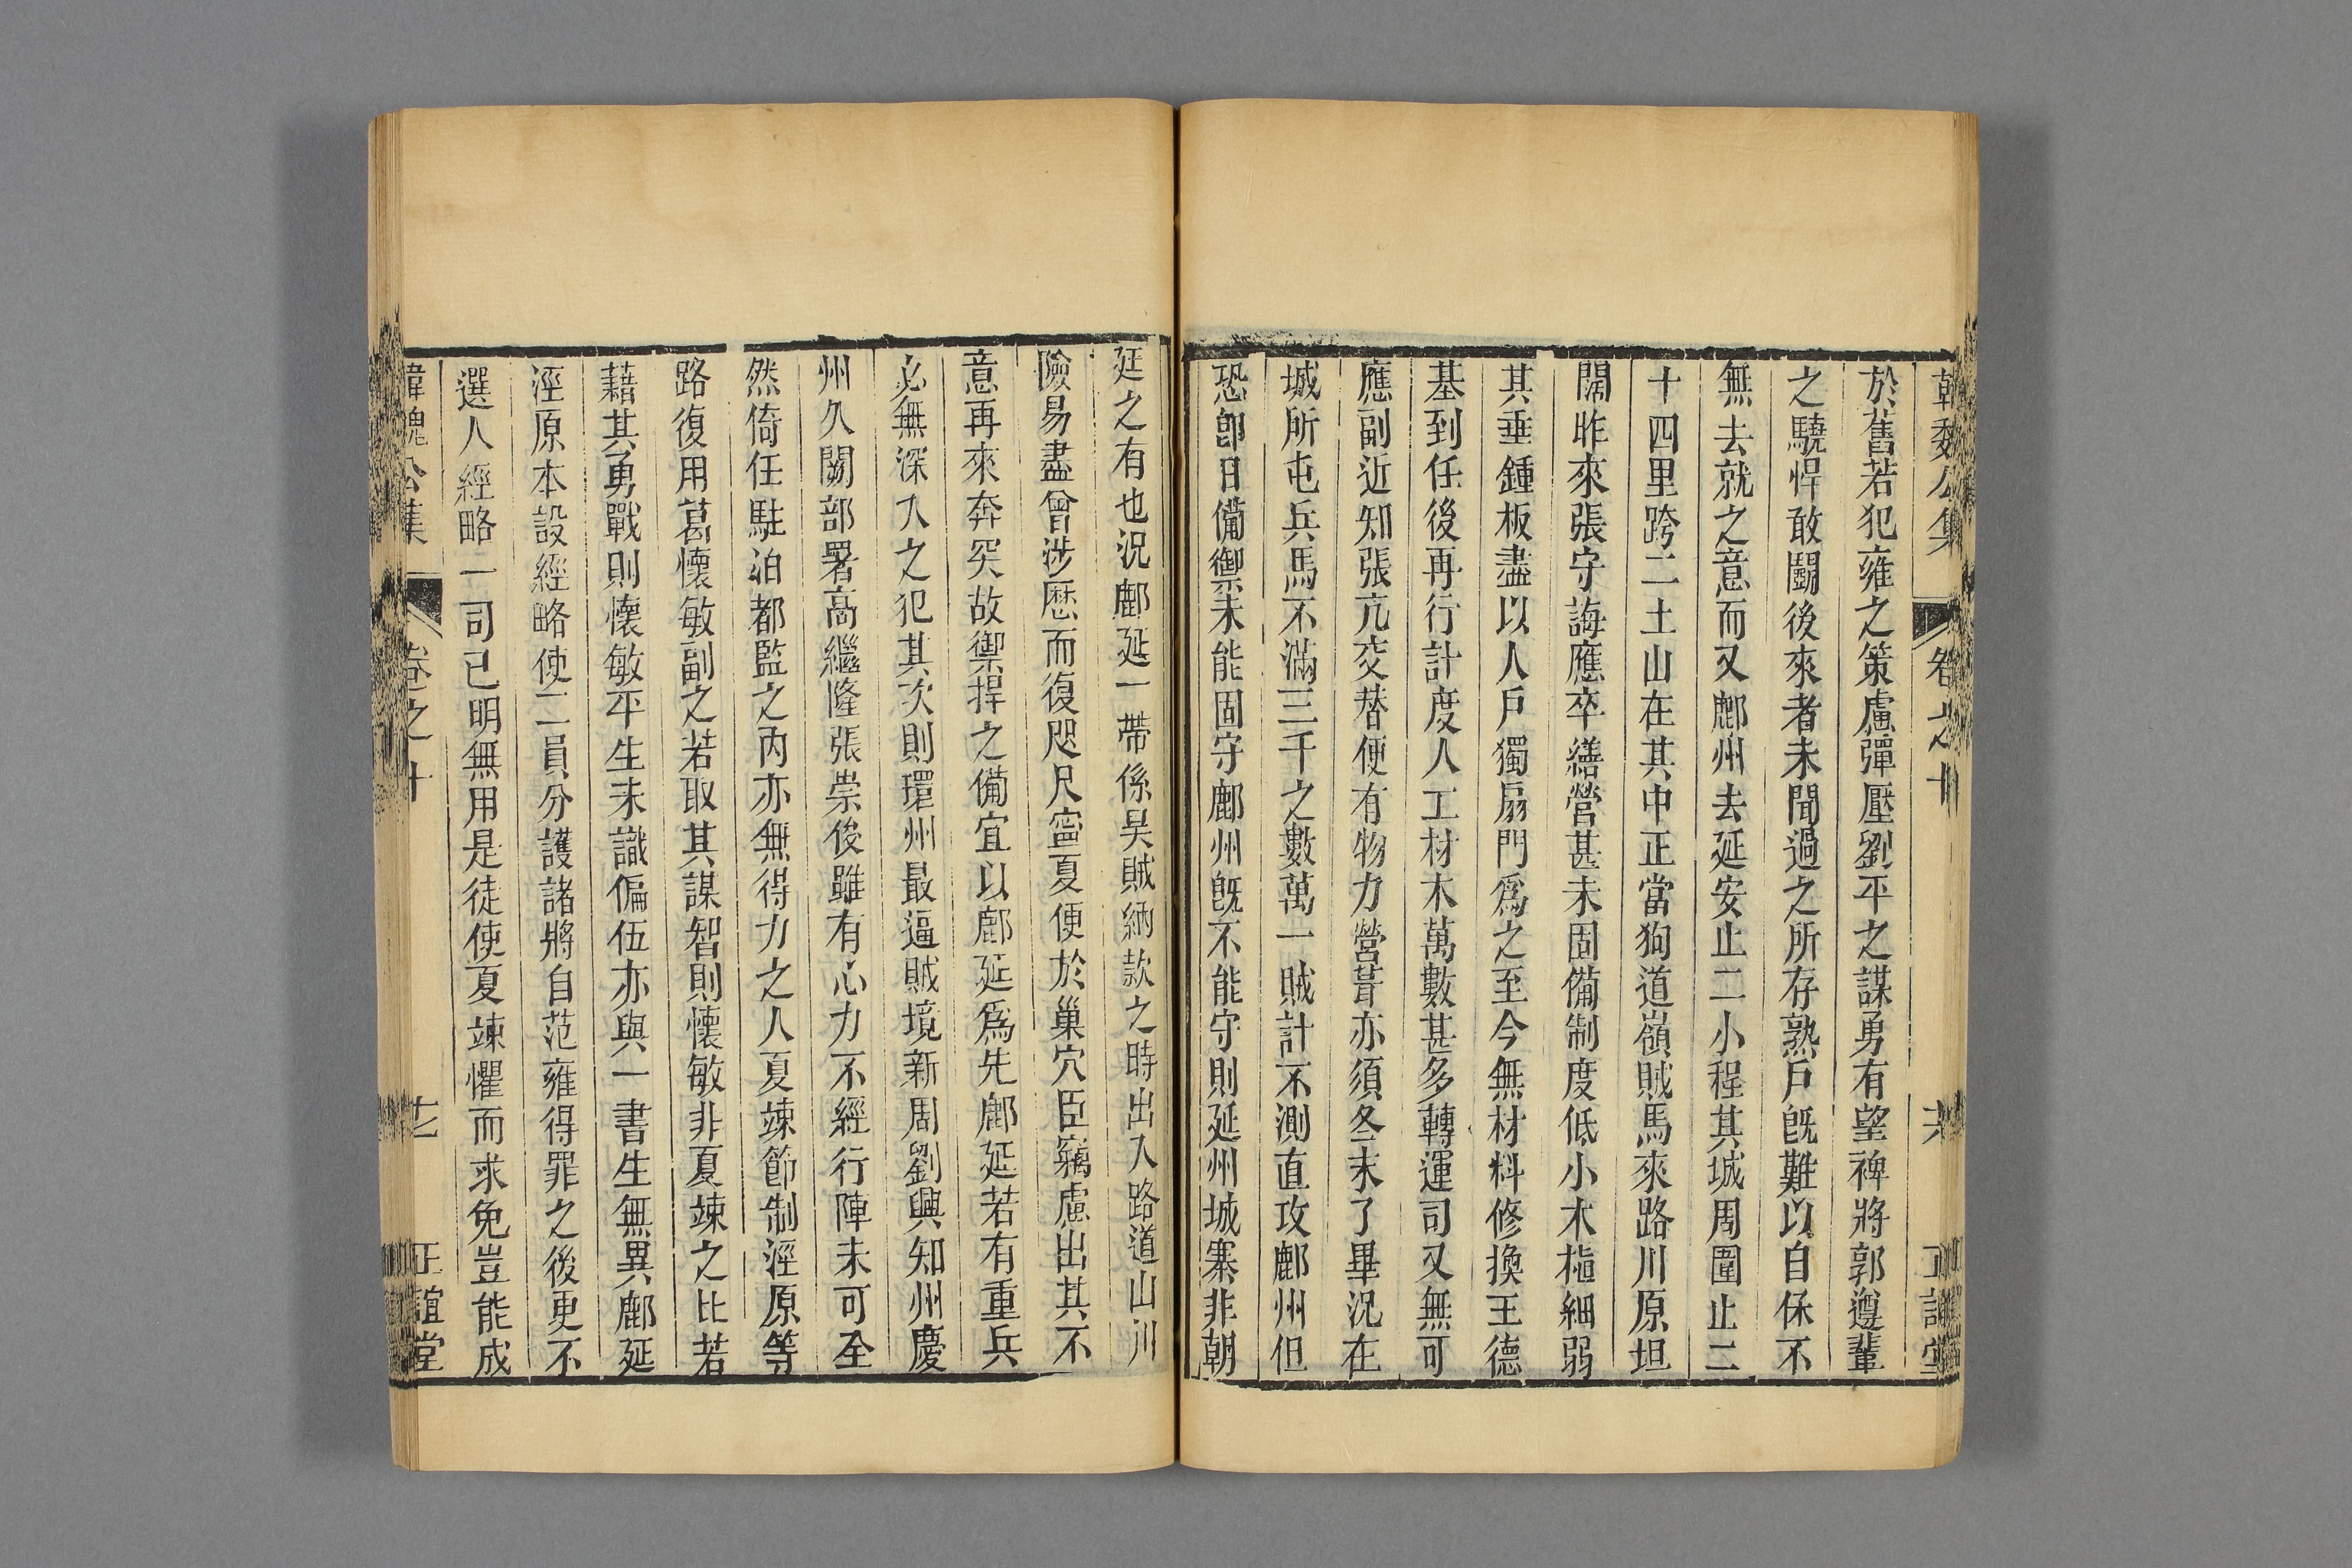 韓魏公集 卷之十 六 正誼堂
於舊若犯雍之策慮彈壓劉平之謀勇有望裨將郭遵輩
之驍悍敢鬬後來者未聞過之所存熟戶旣難以自保不
無去就之意而又鄜州去延安止二小程其城周圍止二
十四里跨二土山在其中正當狗道嶺賊馬來路川原坦
闊昨來張守誨應卒繕營甚未固備制度低小木植細弱
其垂鍾板盡以人戶獨扇門爲之至今無材料修換王德
基到任後再行計度人工材木萬數甚多轉運司又無可
應副近知張亢交替便有物力營葺亦須冬末了畢況在
城所屯兵馬不滿三千之數萬一賊計不測直攻鄜州但
恐卽日備禦未能固守鄜州旣不能守則延州城寨非朝
廷之有也況鄜延一帶係昊賊納款之時出入路道山川
險易盡曾涉歷而復咫尺寧夏便於巢穴臣竊慮出其不
意再來奔突故禦捍之備宜以鄜延爲先鄜延若有重兵
必無深入之犯其次則環州最逼賊境新周劉興知州慶
州久闕部署高繼隆張崇俊雖有心力不經行陣未可全
然倚任駐泊都監之內亦無得力之人夏竦節制涇原等
路復用葛懷敏副之若取其謀智則懷敏非夏竦之比若
藉其勇戰則懷敏平生未識偏伍亦與一書生無異鄜延
涇原本設經略使二員分護諸將自范雍得罪之後更不
選人經略一司已明無用是徒使夏竦懼而求免豈能成
韓魏公集 卷之十 七 正誼堂